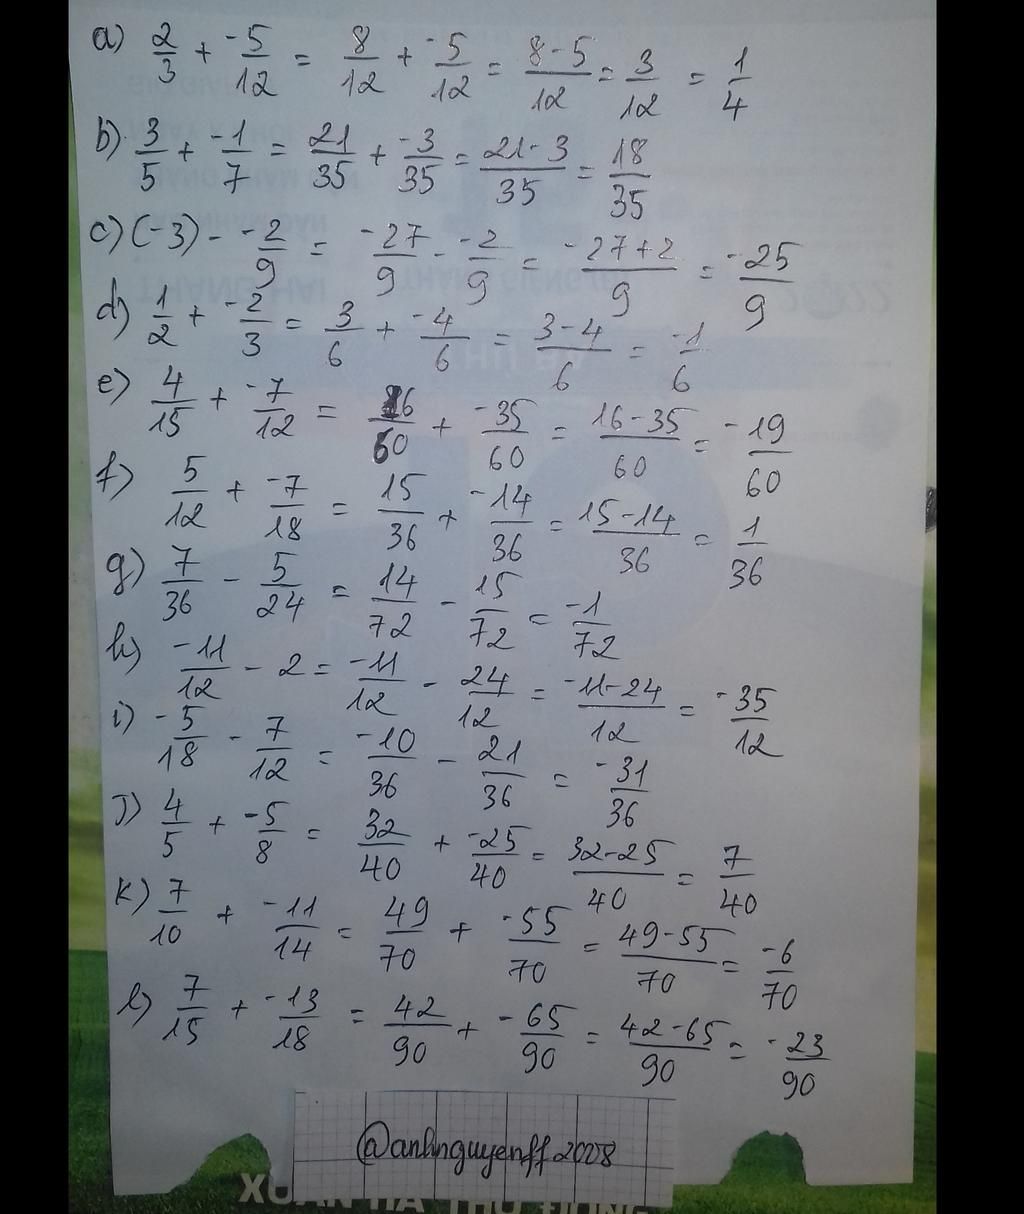 a) 2/3 + -5/12 = 8/12 + -5/12 = 8-5/12 = 3/12 = 1/4
b) 3/5 + -1/7 = 21/35 + -3/35 = 21-3/35 = 18/35
c) (-3) - -2/9 = -27/9 - -2/9 = -27+2/9 = -25/9
d) 1/2 + -2/3 = 3/6 + -4/6 = 3-4/6 = -1/6
e) 4/15 + -7/12 = 16/60 + -35/60 = 16-35/60 = -19/60
f) 5/12 + -7/18 = 15/36 + -14/36 = 15-14/36 = 1/36
g) 7/36 - 5/24 = 14/72 - 15/72 = -1/72
h) -11/12 - 2 = -11/12 - 24/12 = -11-24/12 = -35/12
i) -5/18 - 7/12 = -10/36 - 21/36 = -31/36
J) 4/5 + -5/8 = 32/40 + -25/40 = 32-25/40 = 7/40
K) 7/10 + -11/14 = 49/70 + -55/70 = 49-55/70 = -6/70
l) 7/15 + -13/18 = 42/90 + -65/90 = 42-65/90 = -23/90
@anhnguyenff2008